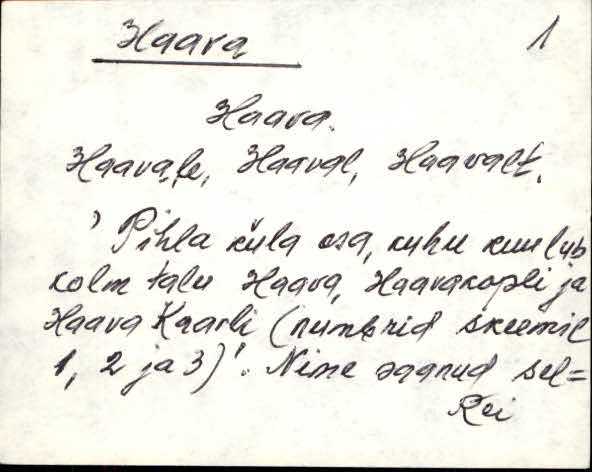 Haava 1
Haava.
Haavale, Haaval, Haavalt.
' Pihla küla osa, kuhu kuulub
kolm talu Haava, Haavakopli ja
Haava Kaarli (numbrid skeemil
1, 2 ja 3)'. Nime saanud sel=
Rei